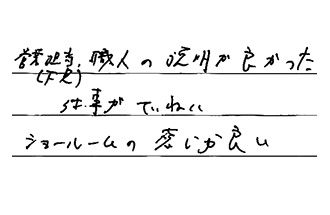 営業担当、職人の説明が良かった
(下見)
仕事がていねい
ショールームの感じが良い